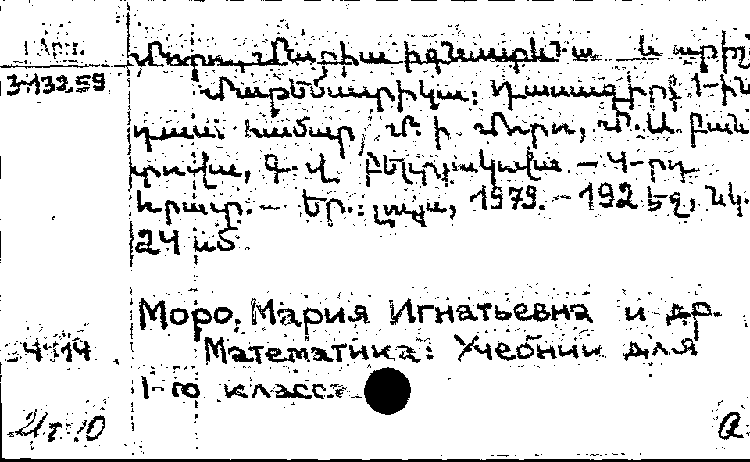 Մորո, Մարիա Իգնատևնա և ուրիշ
3-13259
Մաթեմատիկա: Դասագիրք 1-ին
դաս. համար Մ. Ի. Մորո, Մ. Ա. Բան
տովա, Գ. Վ. Բելտյուկովա – 4-րդ
հրատ. – Եր.: Լույս, 1979. – 192 էջ, նկ.
24 սմ
Моро, Мария Игнатьевна и др.
Математика: Учебник для
1-го класса
a